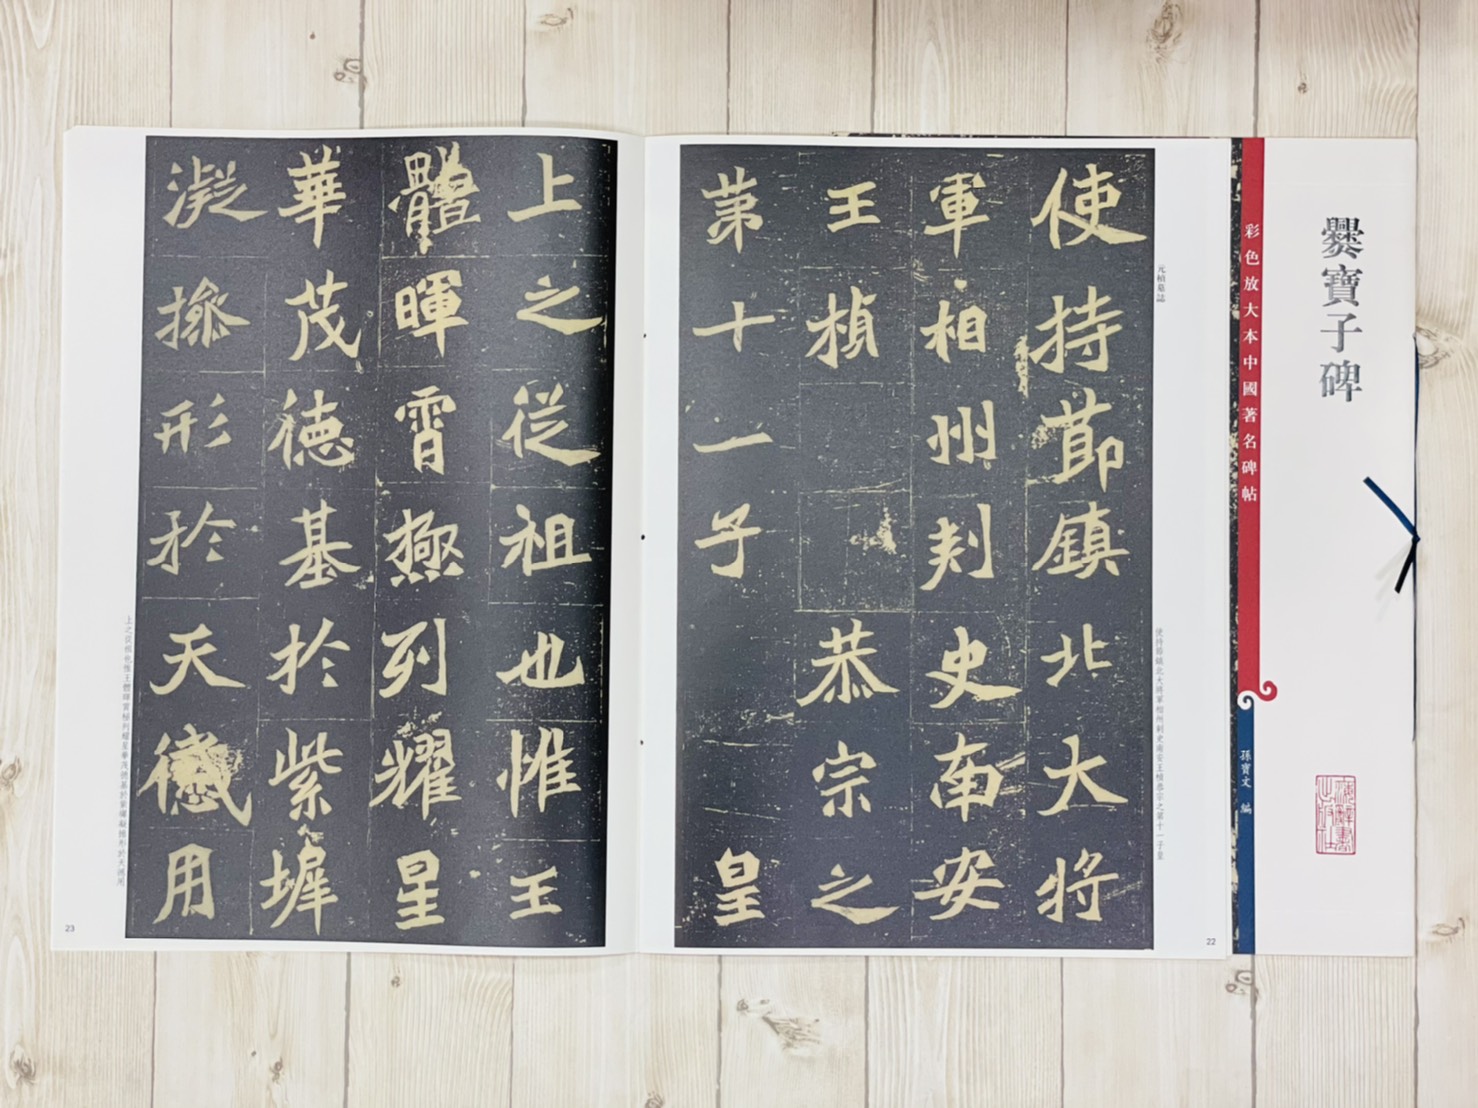 爨寶子碑
彩色放大本中國著名碑帖
孫寶文 編
元楨墓誌
使持節鎮北大將
軍相州刺史南安
王楨 恭宗之
第十一子皇
使持節鎮北大將軍相州刺史南安王楨恭宗之第十一子皇
22
上之從祖也惟王
體暉霄極列耀星
華茂德基於紫墀
凝操形於天用
上之從祖也惟王體暉霄極列耀星華茂德基於紫墀凝操形於天用
23